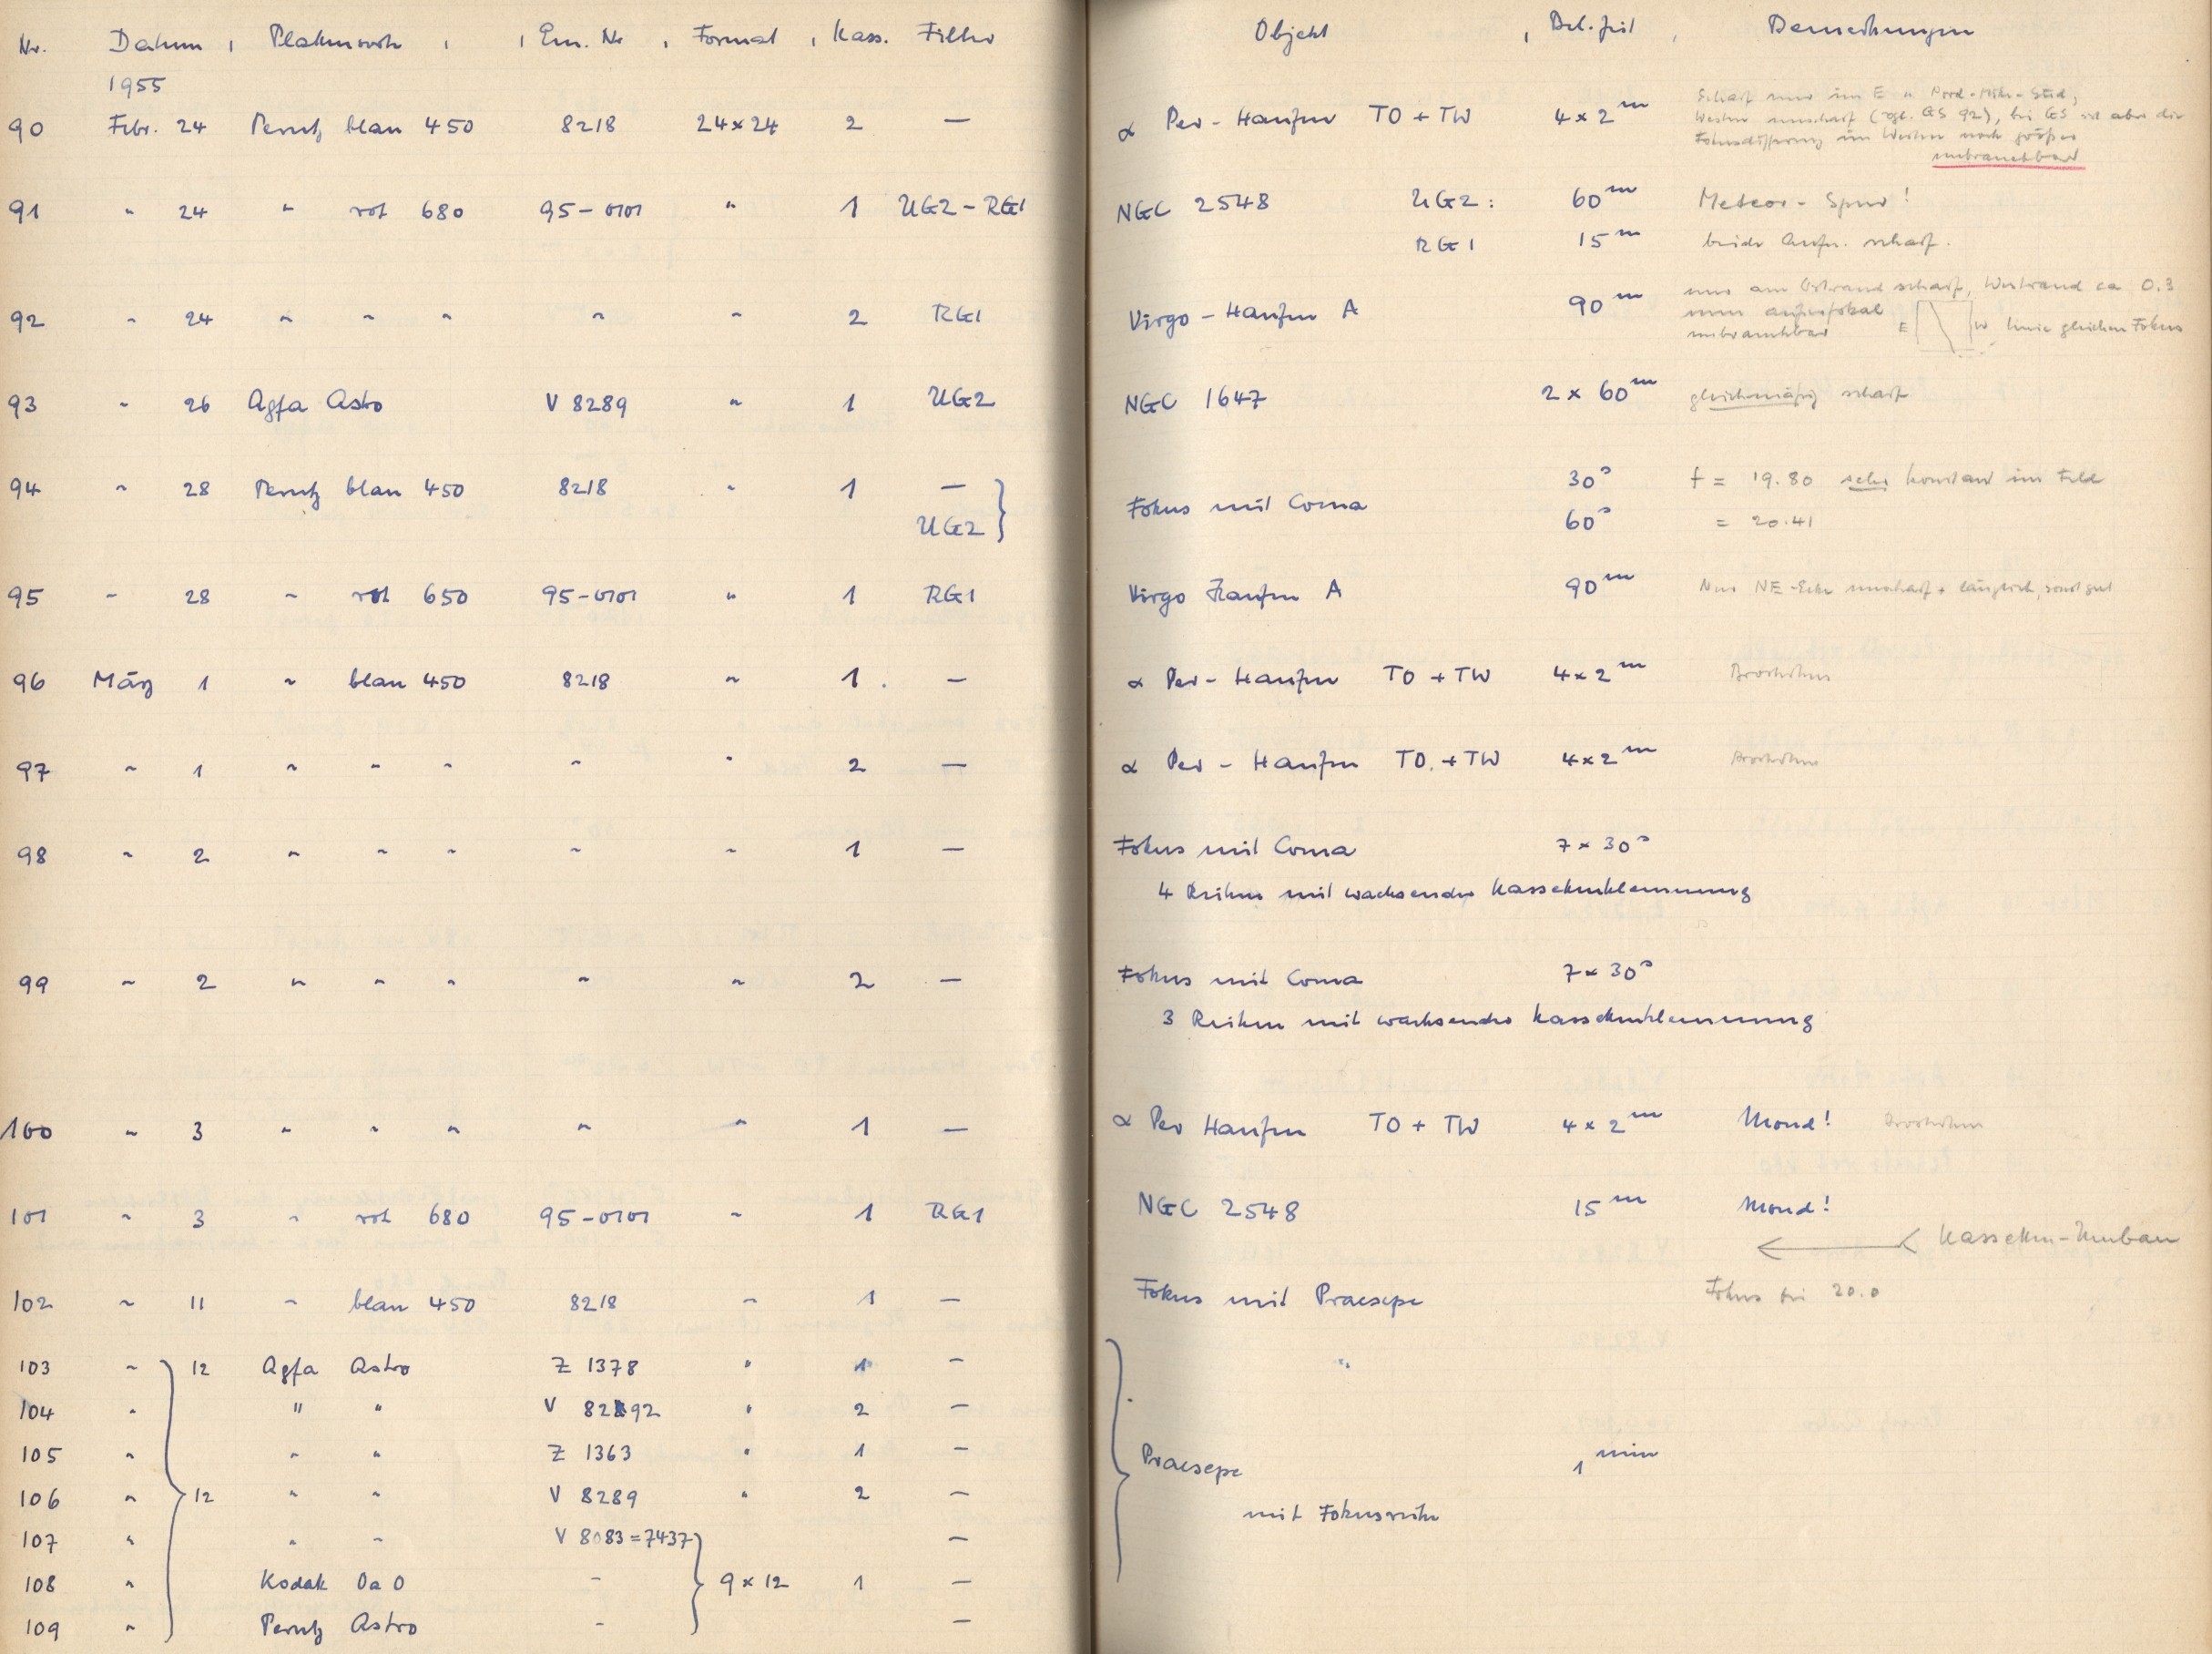 Nr. Datum , Plattensorte , , Em. Nr , Format , Kass. Filter Objekt , Bel.zeit , Bemerkungen
1955
90 Febr. 24 Perutz blau 450 8218 24×24 2 — α Per - Haufen TO + TW 4×2 m Scharf nur im E u Nord-Mitte-Süd,
Westen unscharf (vgl. GS 92), bei GS ist aber die
Fokusdifferenz im Westen noch größer
unbrauchbar
91 " 24 " rot 680 95-0101 " 1 UG2 - RG1 NGC 2548 UG2: 60 m Meteor - Spur!
RG1 15 m beide Aufn. scharf.
92 " 24 " " " " " 2 RG1 Virgo - Haufen A 90 m nur am Ostrand scharf, Westrand ca 0.3
mm außerfokal
unbrauchbar E W Linie gleichen Fokus
93 " 26 Agfa Astro V 8289 " 1 UG2 NGC 1647 2 × 60 m gleichmäßig scharf
94 " 28 Perutz blau 450 8218 " 1 — Fokus mit Coma 30 s f = 19.80 sehr konstant im Feld
UG2 60 s = 20.41
95 " 28 " rot 650 95-0101 " 1 RG1 Virgo Haufen A 90 m Nur NE-Ecke unscharf + länglich, sonst gut
96 März 1 " blau 450 8218 " 1 — α Per - Haufen TO + TW 4×2 m
97 " 1 " " " " " 2 — α Per - Haufen TO + TW 4×2 m
98 " 2 " " " " " 1 — Fokus mit Coma 7 × 30 s
4 Reihen mit wachsender Kassettenklemmung
99 " 2 " " " " " 2 — Fokus mit Coma 7 × 30 s
3 Reihen mit wachsender Kassettenklemmung
100 " 3 " " " " " 1 — α Per Haufen TO + TW 4 × 2 m Mond!
101 " 3 " rot 680 95-0101 " 1 RG1 NGC 2548 15 m Mond!
Kassetten-Umbau
102 " 11 " blau 450 8218 " 1 — Fokus mit Praesepe Fokus bei 20.0
103 " 12 Agfa Astro Z 1378 " 1 — "
104 " " " V 8292 " 2 —
105 " " " Z 1363 " 1 — Praesepe 1 min
106 " 12 " " V 8289 " 2 —
mit Fokusreihe
107 " " " V 8083 = 7437 —
108 " Kodak OaO - 9 × 12 1 —
109 " Perutz Astro - —